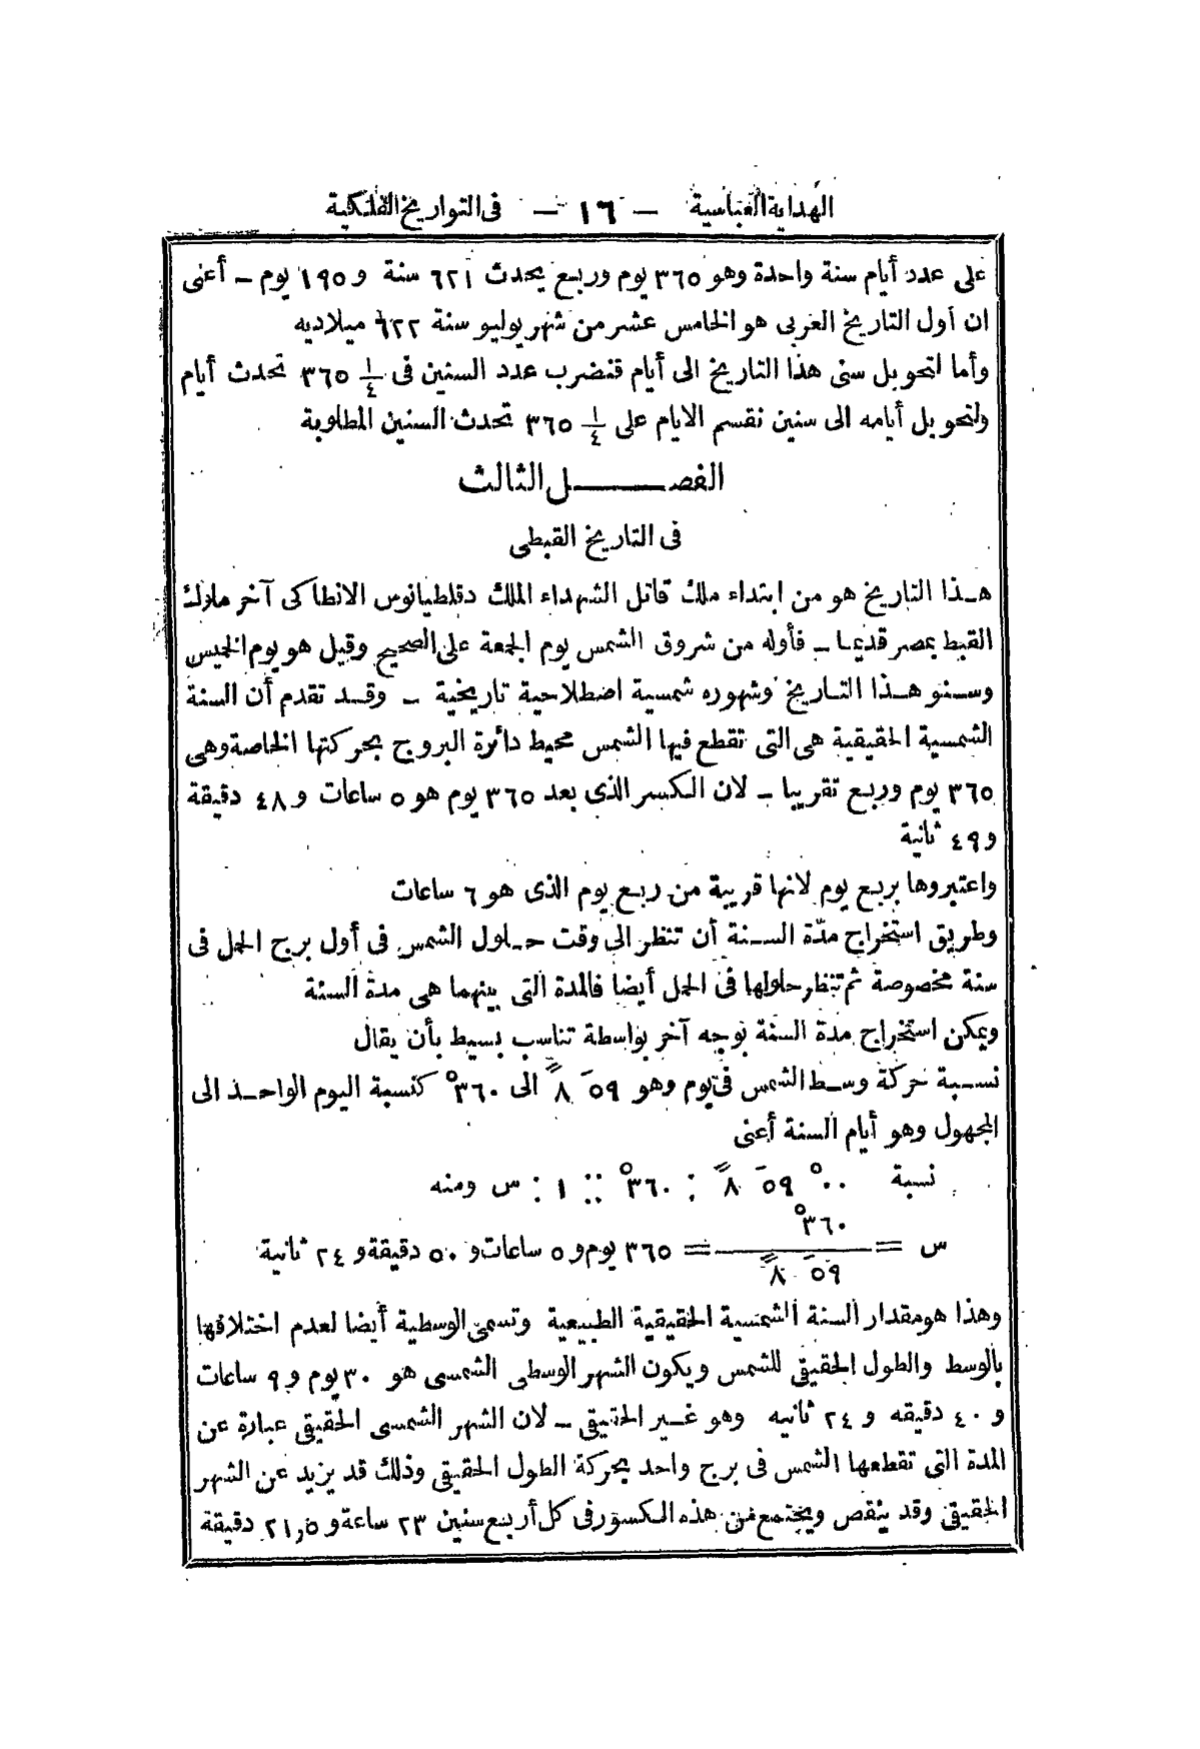 الهداية العباسية — ١٦ — فى التواريخ الفلكية
على عدد أيام سنة واحدة وهو ٣٦٥ يوم وربع يحدث ٦٢١ سنة و ١٩٥ يوم — أعنى
ان أول التاريخ العربى هو الخامس عشر من شهر يوليو سنة ٦٢٢ ميلاديه
وأما لتحويل سنى هذا التاريخ الى أيام فنضرب عدد السنين فى ١/٤ ٣٦٥ تحدث أيام
ولتحويل أيامه الى سنين نقسم الايام على ١/٤ ٣٦٥ تحدث السنين المطلوبة
الفصـــــل الثالث
فى التاريخ القبطى
هـذا التاريخ هو من ابتداء ملك قاتل الشهداء الملك دقلطيانوس الانطاكى آخر ملوك
القبط بمصر قديما — فأوله من شروق الشمس يوم الجمعة على الصحيح وقيل هو يوم الخميس
وسـنو هـذا التـاريخ وشهوره شمسية اصطلاحية تاريخية — وقـد تقدم أن السنة
الشمسية الحقيقية هى التى تقطع فيها الشمس محيط دائرة البروج بحركتها الخاصة وهى
٣٦٥ يوم وربع تقريبا — لان الكسر الذى بعد ٣٦٥ يوم هو ٥ ساعات و ٤٨ دقيقة
و ٤٩ ثانية
واعتبروها بربع يوم لانها قريبة من ربع يوم الذى هو ٦ ساعات
وطريق استخراج مدّة السـنة أن تنظر الى وقت حـلول الشمس فى أول برج الحمل فى
سنة مخصوصة ثم تنظر حلولها فى الحمل أيضا فالمدة التى بينهما هى مدة السنة
ويمكن استخراج مدة السنة بوجه آخر بواسطة تناسب بسيط بأن يقال
نسـبة حركة وسـط الشمس فى يوم وهو ٥٩َ ٨ً الى ٣٦٠° كنسبة اليوم الواحـد الى
المجهول وهو أيام السنة أعنى
نسبة ٠٠° ٥٩َ ٨ً : ٣٦٠° :: ١ : س ومنه
س = ٣٦٠° / ٥٩َ ٨ً = ٣٦٥ يوم و ٥ ساعات و ٥٠ دقيقة و ٢٤ ثانية
وهذا هو مقدار السنة الشمسية الحقيقية الطبيعية وتسمى الوسطية أيضا لعدم اختلافها
بالوسط والطول الحقيقى للشمس ويكون الشهر الوسطى الشمسى هو ٣٠ يوم و ٩ ساعات
و ٤٠ دقيقه و ٢٤ ثانيه وهو غـير الحقيقى — لان الشهر الشمسى الحقيقى عبارة عن
المدة التى تقطعها الشمس فى برج واحد بحركة الطول الحقيقى وذلك قد يزيد عن الشهر
الحقيقى وقد ينقص ويجتمع من هذه الكسور فى كل أربع سنين ٢٣ ساعة و ٢١,٥ دقيقة